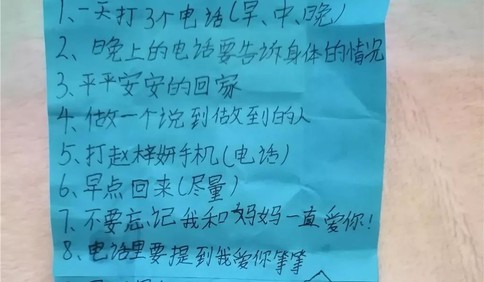 1、一天打3个电话(早、中、晚)
2、晚上的电话要告诉身体的情况
3、平平安安的回家
4、做一个说到做到的人
5、打赵梓妍手机(电话)
6、早点回来(尽量)
7、不要忘记我和妈妈一直爱你!
8、电话里要提到我爱你等等